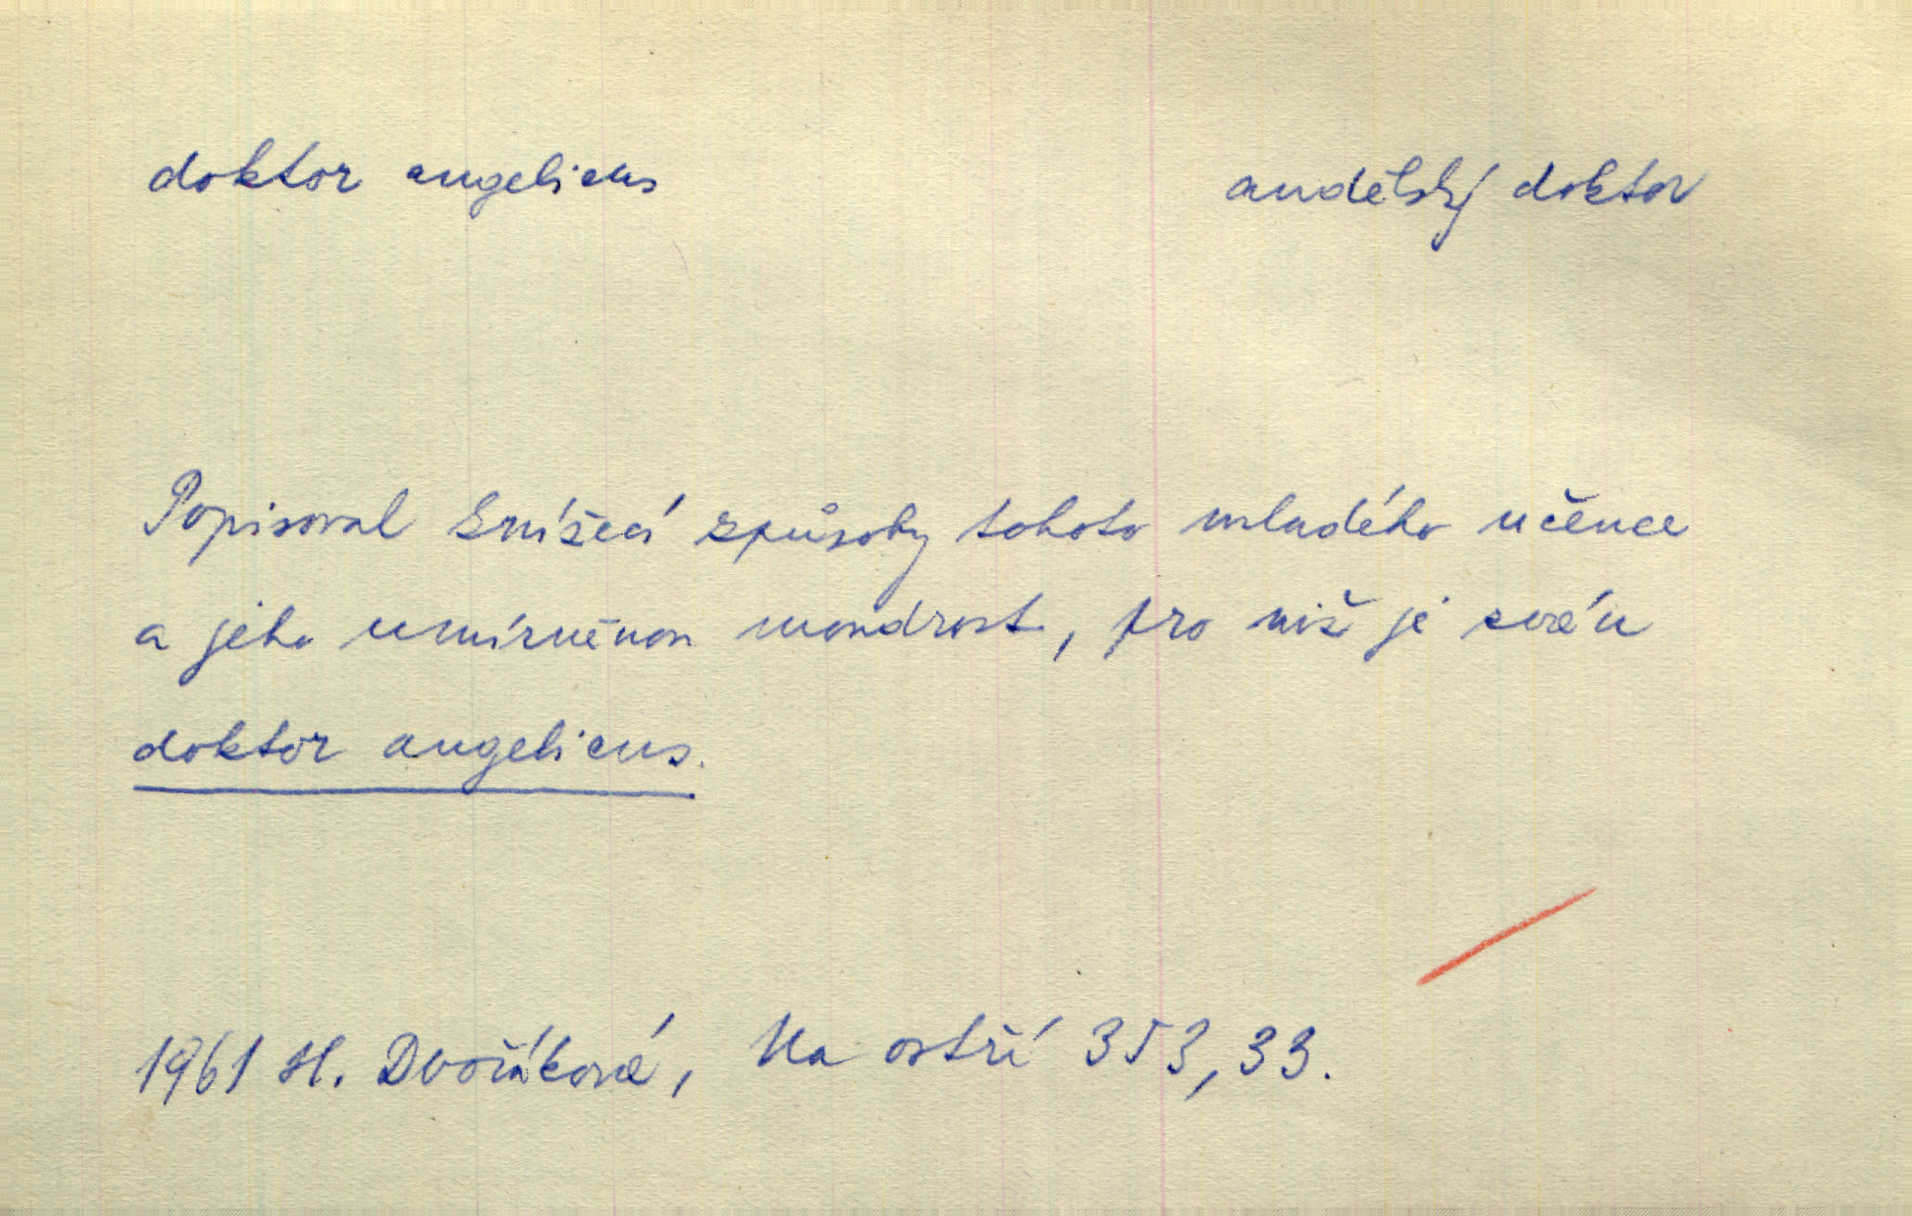 doktor angelicus andělský doktor
Popisoval knížecí způsoby tohoto mladého učence
a jeho umírněnou moudrost, pro niž je zván
doktor angelicus.
1961 H. Dvořáková, Na ostří 353, 33.